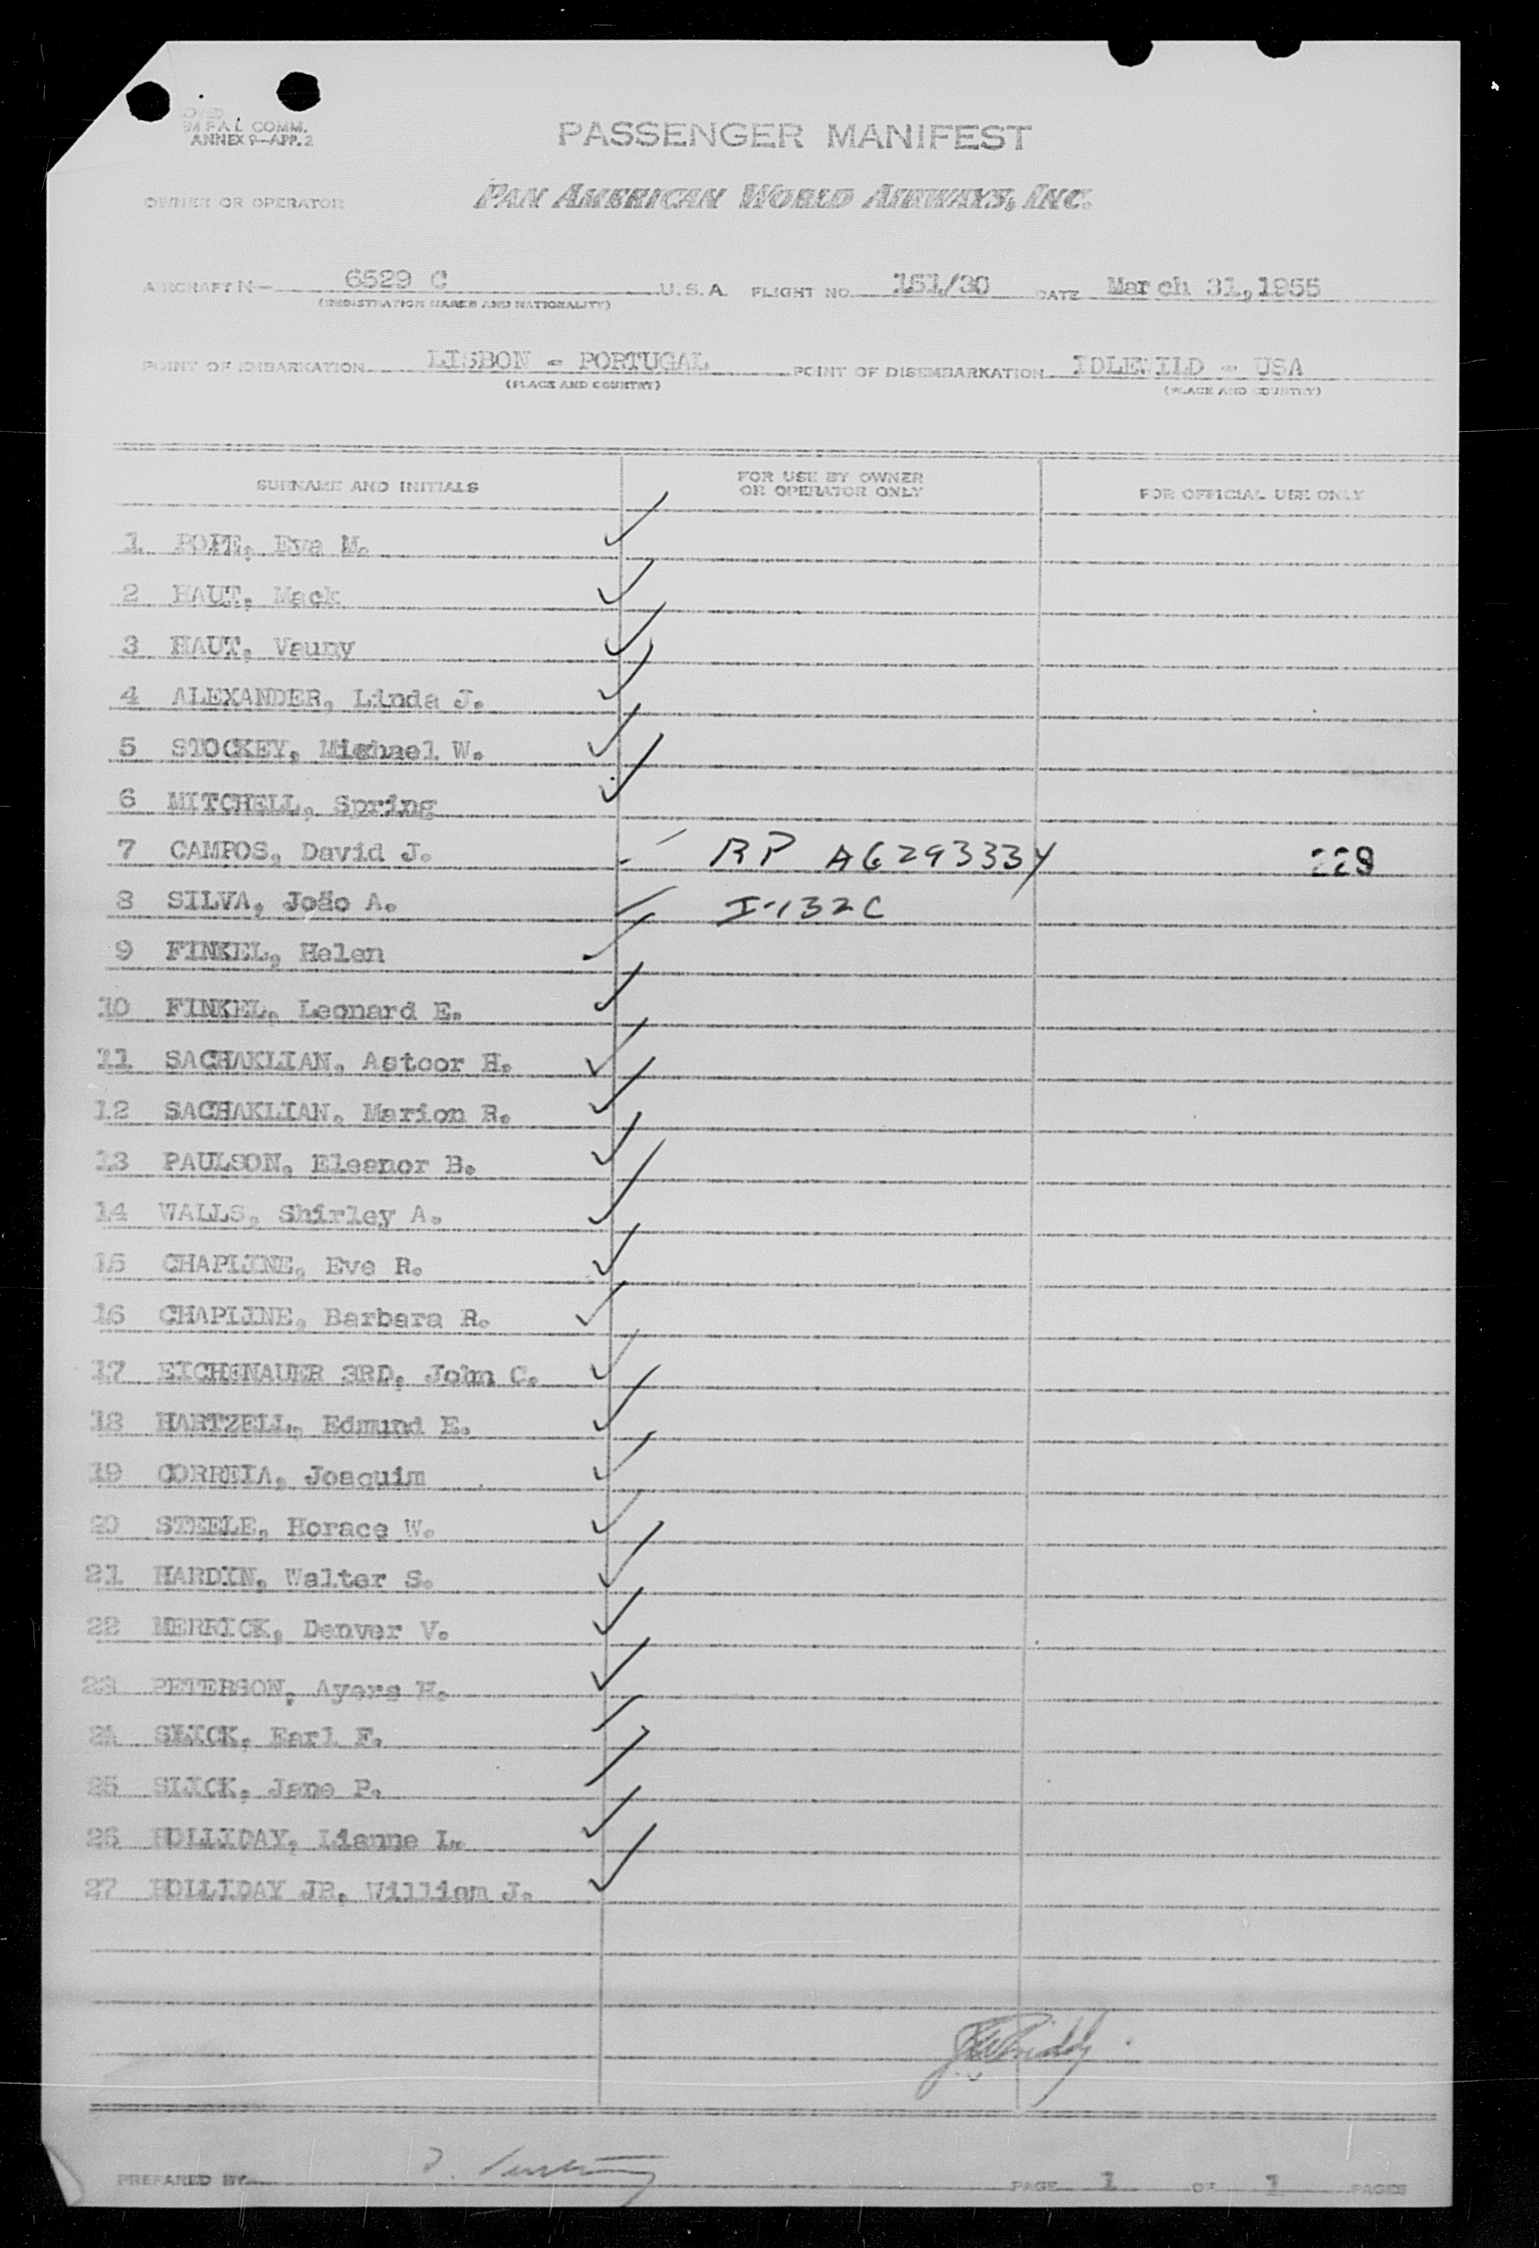 F A L COMM.
ANNEX 9—APP. 2
PASSENGER MANIFEST
OWNER OR OPERATOR
PAN AMERICAN WORLD AIRWAYS, INC.
AIRCRAFT N— 6529 C U. S. A. FLIGHT NO. 151/30 DATE March 31, 1955
(REGISTRATION MARKS AND NATIONALITY)
POINT OF EMBARKATION LISBON - PORTUGAL POINT OF DISEMBARKATION IDLEWILD - USA
(PLACE AND COUNTRY) (PLACE AND COUNTRY)
SURNAME AND INITIALS FOR USE BY OWNER OR OPERATOR ONLY FOR OFFICIAL USE ONLY
1 POPE, Eva M.
2 HAUT, Mack
3 HAUT, Vauny
4 ALEXANDER, Linda J.
5 STOCKEY, Michael W.
6 MITCHELL, Spring
7 CAMPOS, David J. RP A6293334 229
8 SILVA, João A. I-132C
9 FINKEL, Helen
10 FINKEL, Leonard E.
11 SACHAKLIAN, Astoor H.
12 SACHAKLIAN, Marion R.
13 PAULSON, Eleanor B.
14 WALLS, Shirley A.
15 CHAPLINE, Eve R.
16 CHAPLINE, Barbara R.
17 EICHENAUER 3RD, John C.
18 HARTZELL, Edmund E.
19 CORREIA, Joaquim
20 STEELE, Horace W.
21 HARDIN, Walter S.
22 MERRICK, Denver V.
23 PETERSON, Ayers H.
24 SLICK, Earl F.
25 SLICK, Jane P.
26 HOLLIDAY, Lianne L.
27 HOLLIDAY JR, William J.
PREPARED BY PAGE 1 OF 1 PAGES